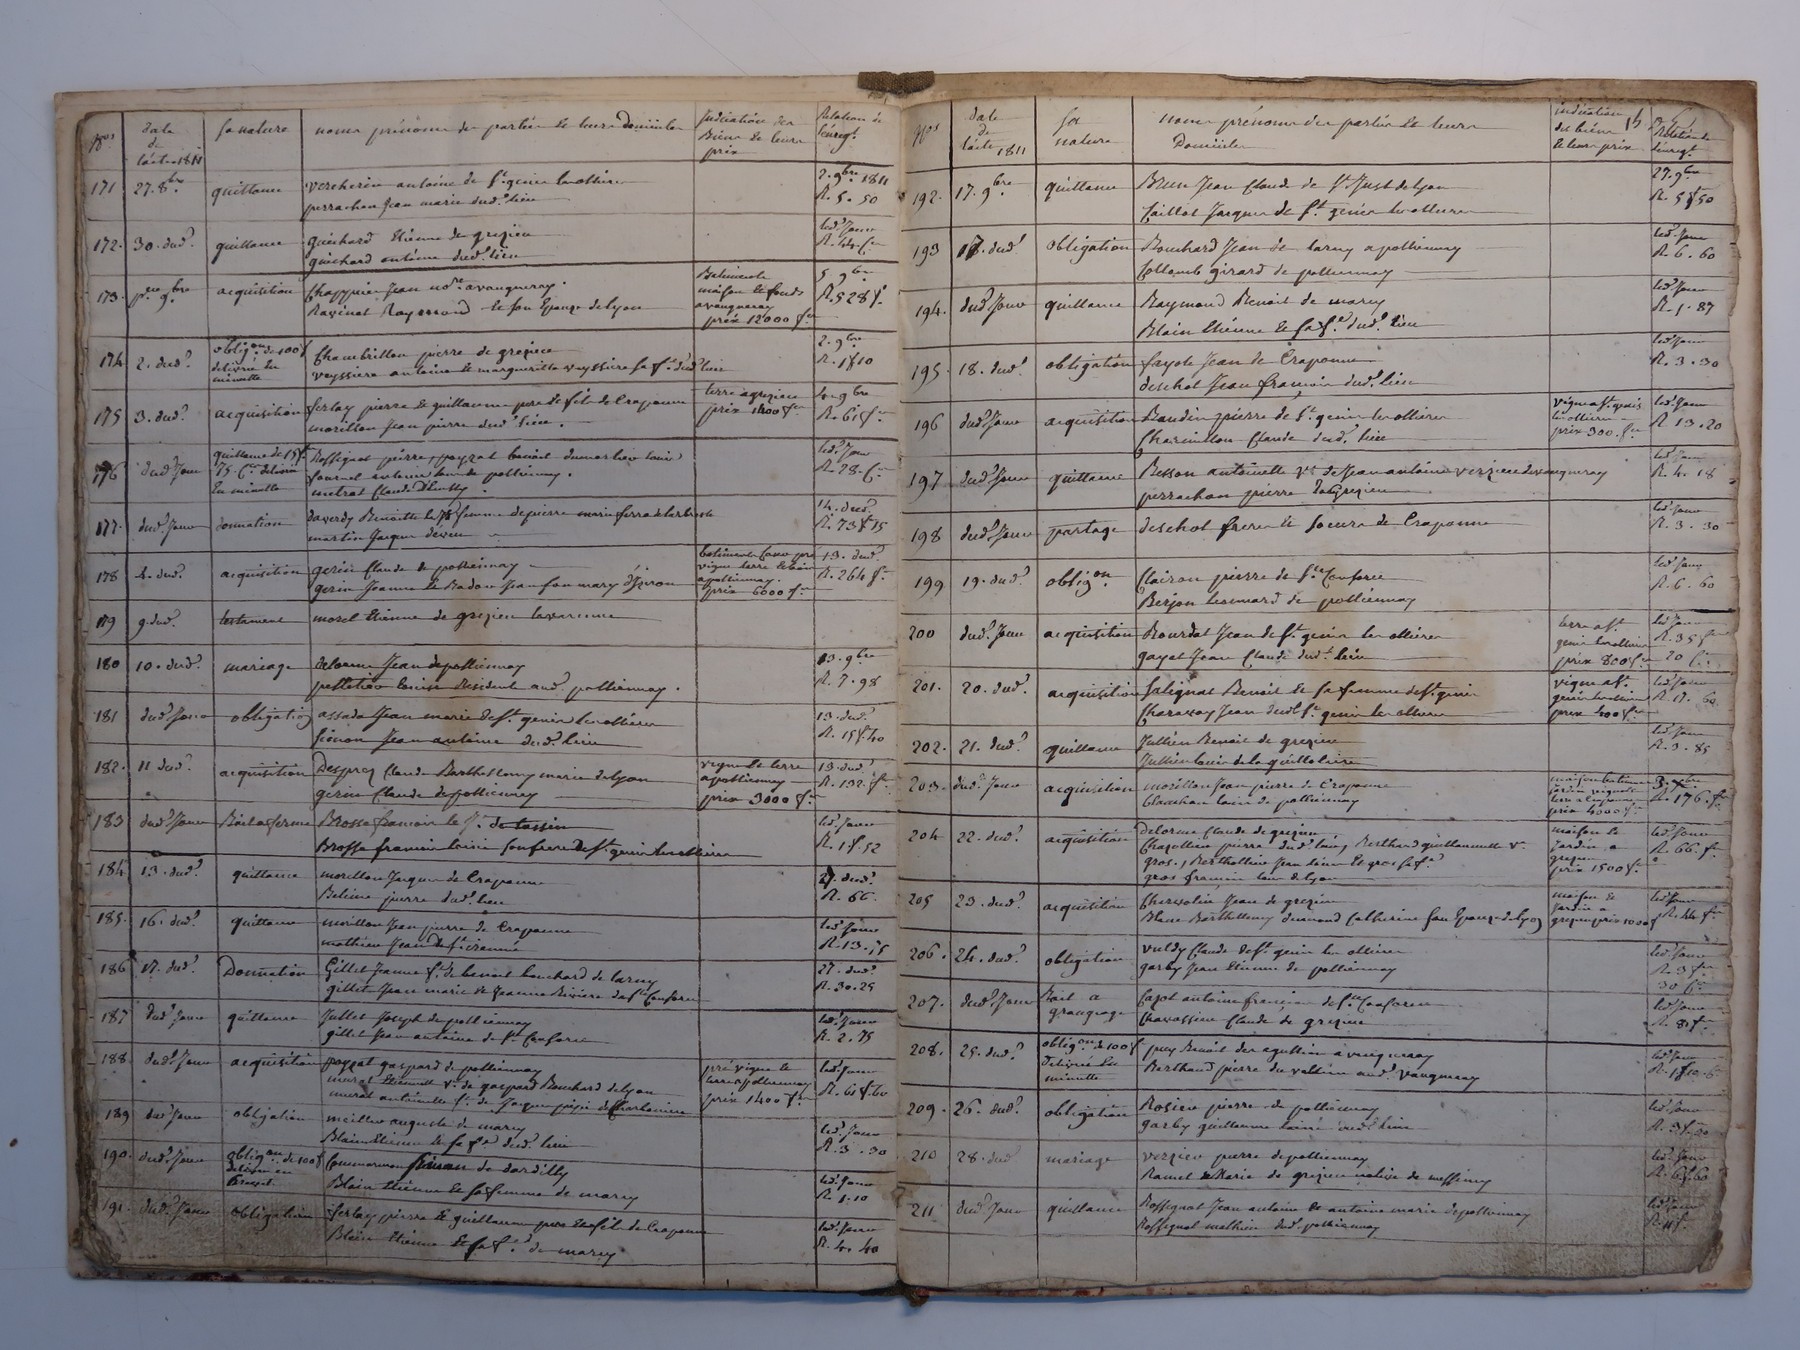 Nos
date de l'acte 1811
sa nature
noms prénoms des parties et leurs Domiciles
Indication des Biens et leurs prix
Relation de l'enregt
171 27. 8bre quittance
vercherin antoine de St genis les ollières
perrachon Jean marie dud. lieu
2. 9bre 1811
R. 5. 50
172. 30. dud. quittance
guichard Etienne de grezieu
guichard antoine dud. lieu
led. Jour
173. 9bre acquisition
Jean a vaugneray.
Ravinat Raymond et son Epouse de Lyon
maison et fonds
a vaugneray
prix 12000 f
5. 9bre
R. 528 f.
174 2. dud. oblig.on de 100 f
délivrée en
minutte
Chambrillon pierre de grezieu
veyssiere antoine et marguerite veyssiere sa fe dud. lieu
2. 9bre
R. 1f10
175 3. dud. acquisition
ferlay pierre et guillaume pere et fils de Craponne
morillon Jean pierre dud. lieu.
terre a grezieu
176 dud. Jour quittance de 15 f.
75. Ces délivrée
En minutte
Rossignat pierre, peyzat benoit
fournel antoine de pollionnay.
metrat Claude
led. Jour
R. 28. C.
177. dud. Jour donnation
martin Jacques
14. dud.
R. 73 f 15
178 4. dud. acquisition
gerin Claude de pollionnay
a pollionnay.
prix 6000 f
13. dud.
R. 264 f
179 9. dud. testament morel Etienne de grezieu lavarenne
180 10. dud. mariage
delorme Jean de pollionnay
pelletier louise Residente aud. pollionnay.
13. 9bre
R. 7. 98
181 dud. Jour obligation
assada Jean marie de St. genis les ollières
Jean antoine dud. lieu
13. dud.
R. 15f.40
182. 11 dud. acquisition
Desprez Claude Barthellemy marie de Lyon
gerin Claude de pollionnay
vigne et terre
a pollionnay
prix 3000 f
13. dud.
R. 132. f
183 dud. Jour Bail a ferme
Brosse françois le Je de tassin
Brosse francois louis son frere de St. genis les ollières
led. Jour
R. 1f. 52
184 13. dud. quittance
morillon Jacques de Craponne
pierre dud. lieu
27. dud.
R. 66.
185. 16. dud. quittance
morillon Jean pierre de Craponne
mathieu Jean
led. Jour
186 17. dud. Donnation
Gillet Jeanne fe de benoit bouchard de larny
gillet Jean marie et Jeanne Riviere de Ste Consorce
27. dud.
R. 30. 25
187 dud. Jour quittance
Jullet Joseph de pollionnay
gillet Jean antoine de Ste Consorce
led. Jour
R. 2. 75
188. dud. Jour acquisition
peyzat gaspard de pollionnay
murat Etiennette ve de gaspard Bouchard de Lyon
murat antoinette fe de Jacques
pré vigne et
terre a pollionnay
prix 1400 f
led. Jour
R. 61 f. 60
189 dud. Jour obligation
meillier auguste de marcy
Blain Etienne et sa fe dud. lieu
led. Jour
R. 3. 30
190. dud. Jour oblig.on de 100 f
délivrée en
Brevet
de dardilly
Blain Etienne et sa femme de marcy
led. Jour
R. 1. 10
191. dud. Jour obligation
ferlay pierre et guillaume pere et fils de Craponne
Blain Etienne et sa fe de marcy
led. Jour
R. 4. 40
Nos
date de l'acte 1811
sa nature
noms prénoms des parties et leurs Domiciles
indication des biens et leurs prix
Relation de l'enregt
192. 17. 9bre quittance
Brun Jean Claude de St Just de Lyon
Caillot Jacques de St. genis les ollieres
27. 9bre
R. 5f50
193 17. dud. obligation
Bouchard Jean de larny a pollionnay
Collomb girard de pollionnay
led. Jour
R. 6. 60
194. dud. Jour quittance
Raymond Benoit de marcy
Blain Etienne et sa fe dud. lieu
led. Jour
R. 1. 87
195. 18. dud. obligation
fayole Jean de Craponne
deschot Jean françois dud. lieu
led. Jour
R. 3. 30
196 dud. Jour acquisition
Baudin pierre de St. genis les ollieres
Claude dud. lieu
vigne a St. genis
les ollieres
prix 300. f
led. Jour
R 13. 20
197 dud. Jour quittance
Besson antoinette ve de Jean antoine verzieu de vaugneray
perrachon pierre de grezieu
led. Jour
R. 4. 18
198 dud. Jour partage deschot freres et soeurs de Craponne
led. Jour
R. 3. 30
199 19. dud. oblig.on
Clairon pierre de Ste Consorce
Berjon Leonard de pollionnay
led. Jour
R. 6. 60
200 dud. Jour acquisition
Bourdat Jean de St. genis les ollieres
gayet Jean Claude dud. lieu
terre a St.
genis les ollieres
prix 800 f
led. Jour
R. 35 f
20 C
201. 20. dud. acquisition
Salignat Benoit et sa femme de St. genis
Charavay Jean dud. St. genis les ollieres
vigne a St.
genis les ollieres
prix 400 f
led. Jour
R. 17. 60
202. 21. dud. quittance
Jullien Benoit de grezieu
Jullien louis de la guillotiere
led. Jour
R. 3. 85
203. dud. Jour acquisition
morillon Jean pierre de Craponne
Blanchon louis de pollionnay
prix 4000 f
R. 176. f
204 22. dud. acquisition
Delorme Claude de grezieu
pierre dud. lieu, Berthaud guillaumette ve
gros, Bertholin Jean
gros françois
maison et
jardin a
grezieu
prix 1500 f
led. Jour
R. 66. f
205 23. dud. acquisition
Jean de grezieu
Blanc Barthellemy Catherine son Epouse de Lyon
maison et
jardin a
grezieu prix 1000 f
led. Jour
R. 44 f
206. 24. dud. obligation
vuldy Claude de St. genis les ollieres
garby Jean Etienne de pollionnay
led. Jour
R. 3 f
30 C
207. dud. Jour Bail a
grangeage
Cazot antoine françois de Ste Consorce
Chavassieu Claude de grezieu
led. Jour
208. 25. dud. oblig.on de 100 f
délivrée En
minutte
Benoit a vaugneray
Berthaud pierre du vallin aud. vaugneray
led. Jour
209. 26. dud. obligation
Rosier pierre de pollionnay
garby guillaume dud. lieu
led. Jour
R. 3f.30
210 28. dud. mariage
verzieu pierre de pollionnay
Ramel Marie de grezieu native de messimy
led. Jour
R. 6f.60
211 dud. Jour quittance
Rossignat Jean antoine et antoine marie de pollionnay
Rossignat mathieu dud. pollionnay
led. Jour